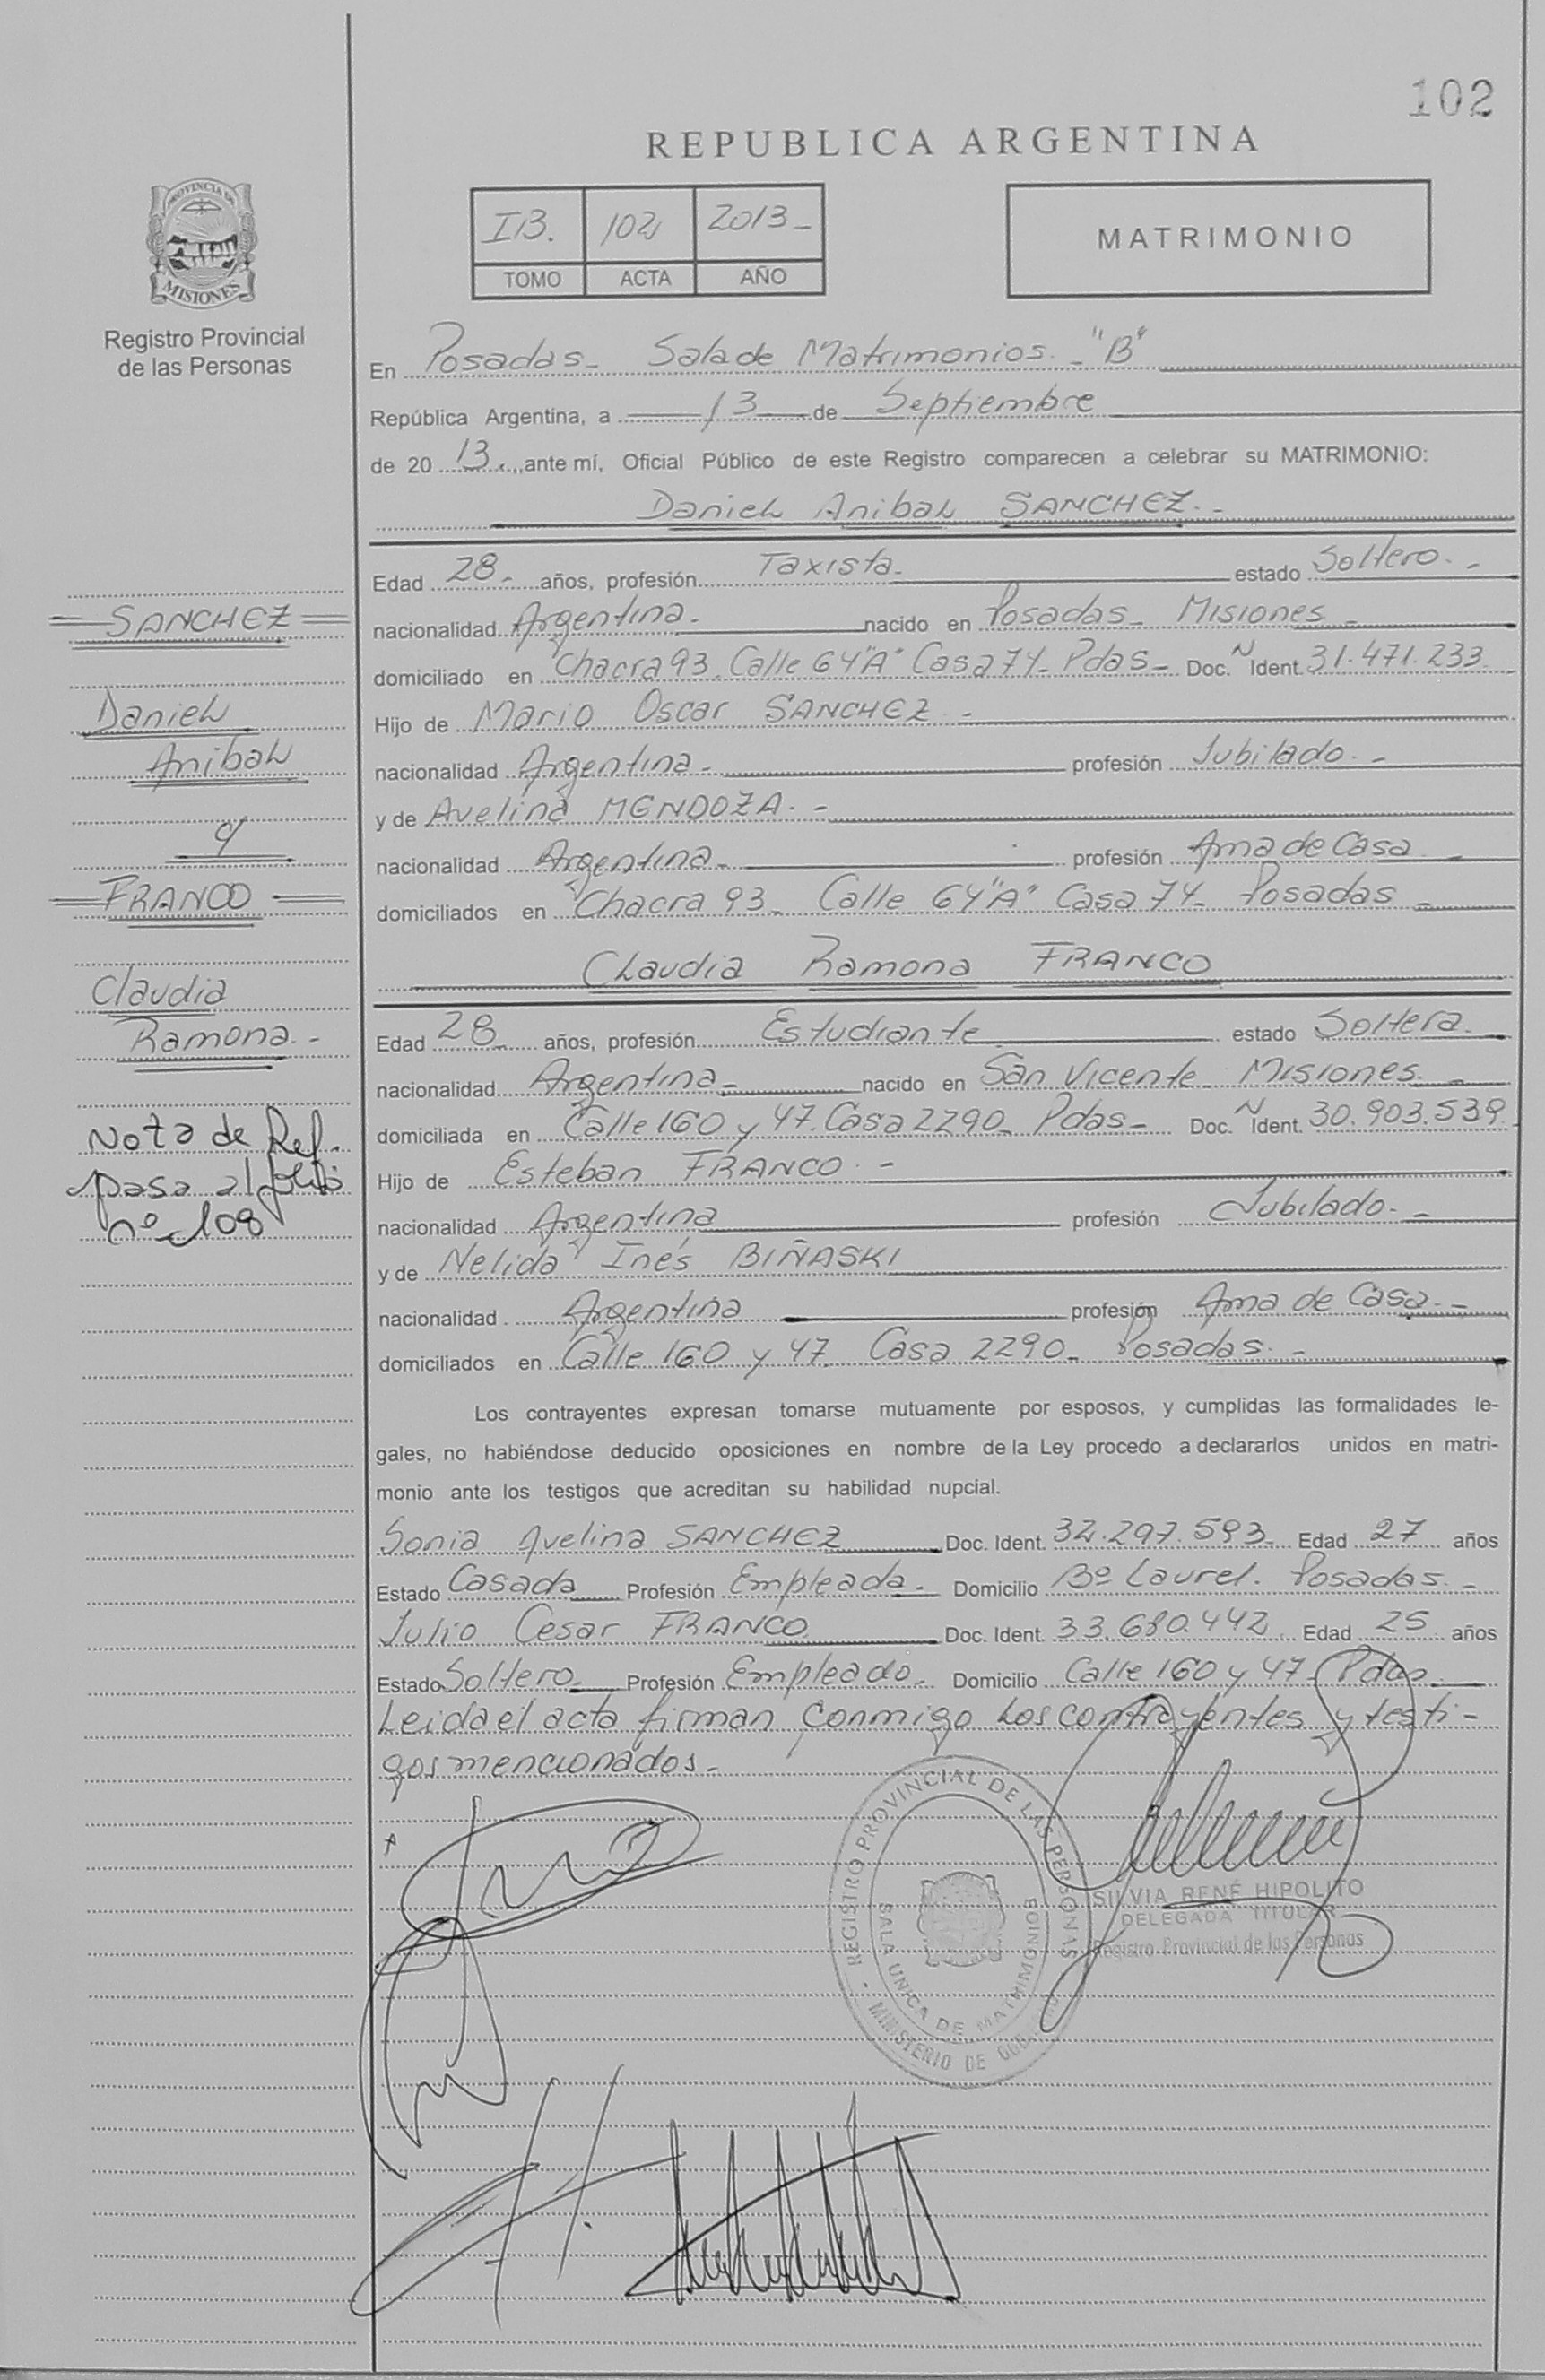 102
REPUBLICA ARGENTINA
PROVINCIA DE
MISIONES
Registro Provincial
de las Personas
I B. 102 2013-
TOMO ACTA AÑO
MATRIMONIO
En Posadas- Sala de Matrimonios.- "B"
República Argentina, a 13 de Septiembre
de 20 13. ante mí, Oficial Público de este Registro comparecen a celebrar su MATRIMONIO:
Daniel Anibal SANCHEZ.-
Edad 28- años, profesión Taxista- estado Soltero.-
nacionalidad Argentina.- nacido en Posadas- Misiones-
domiciliado en Chacra 93. Calle 64"A" Casa 74- Pdas- Doc. N Ident. 31.471.233
Hijo de Mario Oscar SANCHEZ.-
nacionalidad Argentina- profesión Jubilado.-
y de Avelina MENDOZA.-
nacionalidad Argentina- profesión Ama de Casa-
domiciliados en Chacra 93- Calle 64"A" Casa 74- Posadas-
Claudia Ramona FRANCO
Edad 28- años, profesión Estudiante estado Soltera.
nacionalidad Argentina- nacido en San Vicente- Misiones.-
domiciliada en Calle 160 y 47. Casa 2290- Pdas- Doc. N Ident. 30.903.539.
Hijo de Esteban FRANCO.-
nacionalidad Argentina profesión Jubilado.-
y de Nelida Inés BIÑASKI
nacionalidad Argentina profesión Ama de Casa.-
domiciliados en Calle 160 y 47 Casa 2290- Posadas.-
Los contrayentes expresan tomarse mutuamente por esposos, y cumplidas las formalidades le-
gales, no habiéndose deducido oposiciones en nombre de la Ley procedo a declararlos unidos en matri-
monio ante los testigos que acreditan su habilidad nupcial.
Sonia Avelina SANCHEZ Doc. Ident. 32.297.593- Edad 27 años
Estado Casada Profesión Empleada- Domicilio Bº Laurel. Posadas.-
Julio Cesar FRANCO Doc. Ident. 33.680.442. Edad 25 años
Estado Soltero- Profesión Empleado- Domicilio Calle 160 y 47- Pdas
Leida el acta firman conmigo los contrayentes y testi-
gos mencionados.-
SANCHEZ
Daniel
Anibal
c/
FRANCO
Claudia
Ramona.-
Nota de Ref.
pasa al folio
nº 108
REGISTRO PROVINCIAL DE LAS PERSONAS
SALA UNICA DE MATRIMONIOS
MINISTERIO DE
SILVIA RENÉ HIPOLITO
DELEGADA TITULAR
Registro Provincial de las Personas